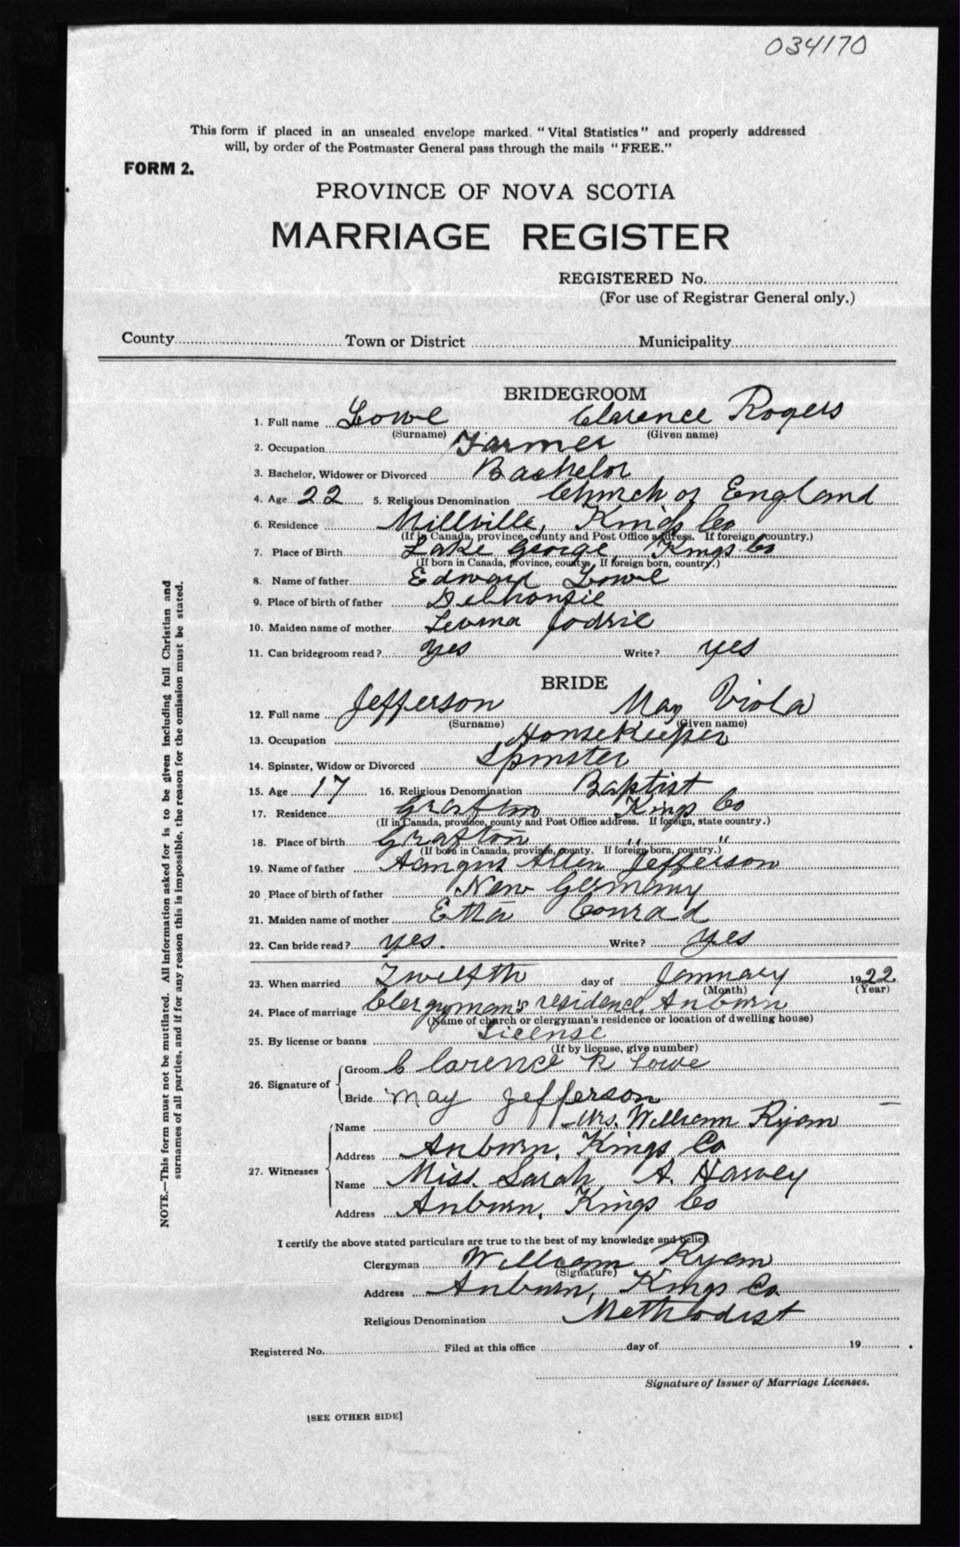 034170
This form if placed in an unsealed envelope marked. "Vital Statistics" and properly addressed
will, by order of the Postmaster General pass through the mails "FREE."
FORM 2.
PROVINCE OF NOVA SCOTIA
MARRIAGE REGISTER
REGISTERED No.
(For use of Registrar General only.)
County Town or District Municipality
BRIDEGROOM
1. Full name Lowe Clarence Rogers
(Surname) (Given name)
2. Occupation Farmer
3. Bachelor, Widower or Divorced Bachelor
4. Age 22 5. Religious Denomination Church of England
6. Residence Millville, Kings Co
(If in Canada, province, county and Post Office address. If foreign, country.)
7. Place of Birth Lake George, Kings Co
(If born in Canada, province, county. If foreign born, country.)
8. Name of father Edward Lowe
9. Place of birth of father Delhousie
10. Maiden name of mother Levina Jodrie
11. Can bridegroom read? Yes Write? yes
BRIDE
12. Full name Jefferson May Viola
(Surname) (Given name)
13. Occupation Housekeeper
14. Spinster, Widow or Divorced Spinster
15. Age 17 16. Religious Denomination Baptist
17. Residence Grafton Kings Co
(If in Canada, province, county and Post Office address. If foreign, state country.)
18. Place of birth Grafton " "
(If born in Canada, province, county. If foreign born, country.)
19. Name of father Aangus Allen Jefferson
20 Place of birth of father New Germany
21. Maiden name of mother Etta Conrad
22. Can bride read? yes. Write? yes
23. When married Twelfth day of January 1922
(Month) (Year)
24. Place of marriage Clergyman's residence, Auburn
(Name of church or clergyman's residence or location of dwelling house)
25. By license or banns License
(If by license, give number)
26. Signature of Groom Clarence R Lowe
Bride May Jefferson
27. Witnesses Name Mrs. William Ryan
Address Auburn, Kings Co
Name Miss. Sarah A. Harvey
Address Auburn, Kings Co
I certify the above stated particulars are true to the best of my knowledge and belief.
Clergyman William Ryan
(Signature)
Address Auburn, Kings Co
Religious Denomination Methodist
Registered No. Filed at this office day of 19
Signature of Issuer of Marriage Licenses.
[SEE OTHER SIDE]
NOTE.—This form must not be mutilated. All information asked for is to be given including full Christian and
surnames of all parties, and if for any reason this is impossible, the reason for the omission must be stated.